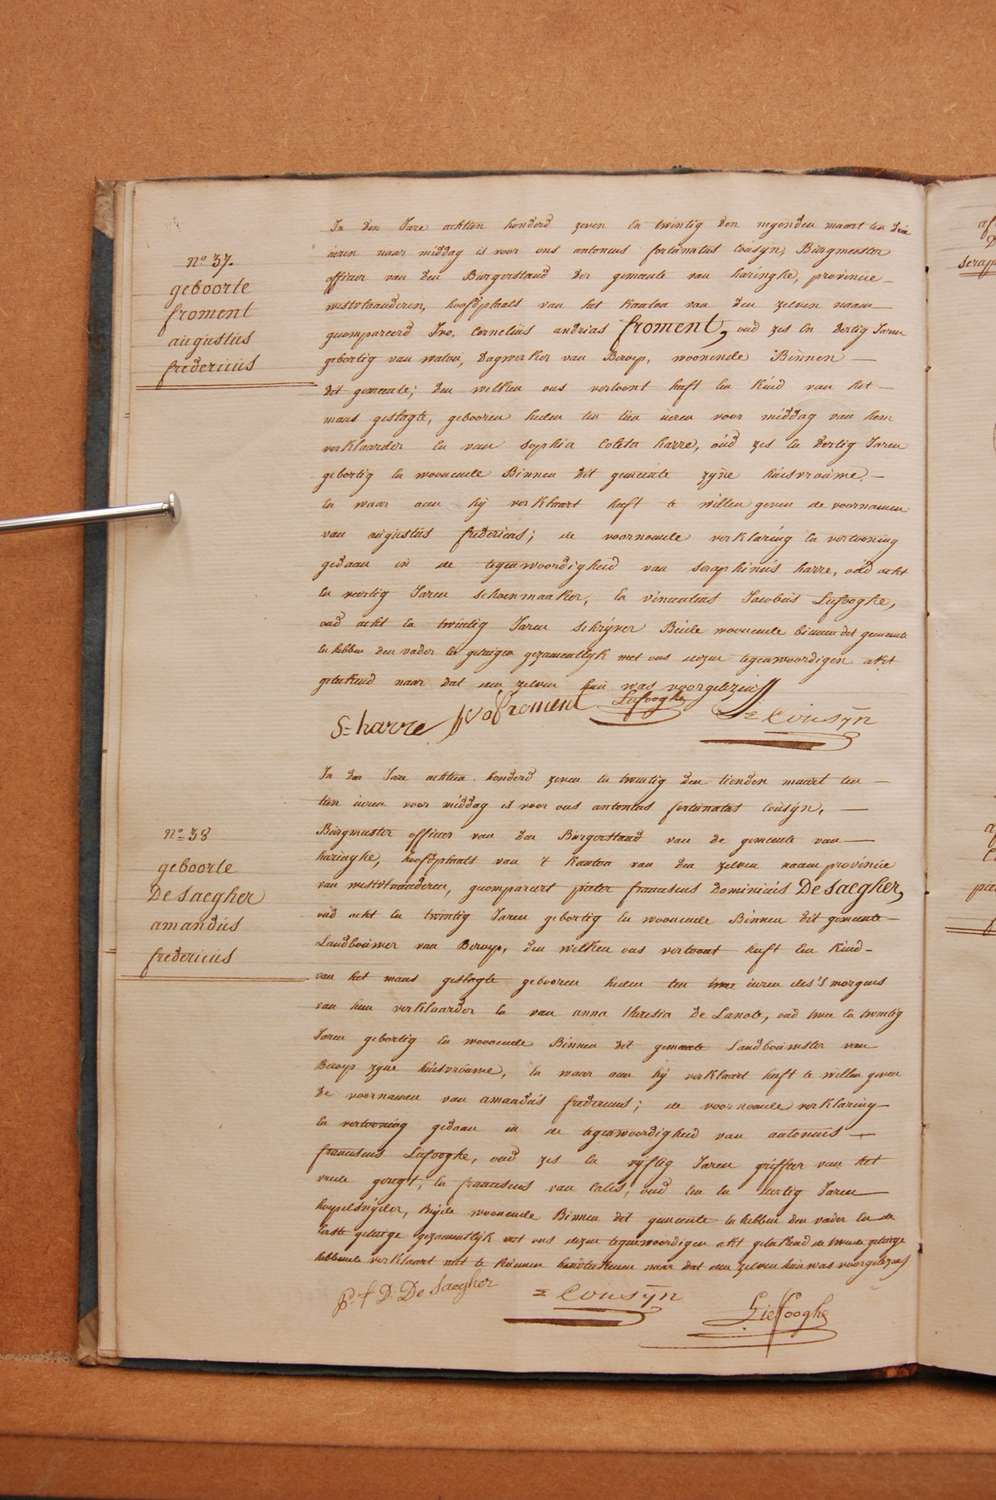 n° 37.
geboorte
froment
augustus
fredericus
In den Jare achtien honderd zeven en twintig den negenden maart ten drie
uren naer middag is voor ons antonius fortunatus Cousyn, Burgmeester
officier van den Burgerstand der gemeente van haringhe, provincie
westvlaanderen, hoofdplaats van het Kanton van den zelven naam
gecompareerd Ivo, Cornelius andrias froment, oud zes en dertig Jaren
gebortig van watou, Dagwerker van Beroep, woonende Binnen
dit gemeente; den welken ons vertoont heeft een kind van het
mans geslagte, geboren heden ten tien uren voor middag van hem
verklaarder en van Sophia Coleta harre, oud zes en dertig Jaren
gebortig en woonende Binnen dit gemeente zyne huisvrouwe.
en waar aan hij verklaart heeft te willen geven de voornamen
van augustus fredericus; de voornoemde verklaring en vertooning
gedaan in de tegenwoordigheid van seraphinus harre, oud acht
en veertig Jaren schoenmaaker, en vincentius Jacobus Liefooghe,
oud acht en twintig Jaren schrijver Beide woonende binnen dit gemeente
en hebben den vader en getuigen gezamentlyk met ons dezen tegenwoordigen akt
geteekend naar dat een zelven hun was voorgelezen
S: harre Ivo froment Liefooghe
= Cousÿn
n° 38
geboorte
De Saegher
amandus
fredericus
In den Jare achtien honderd zeven en twintig den tienden maart ten
tien uren voor middag is voor ons antonius fortunatus Cousyn,
Burgmeester officier van den Burgerstand van de gemeente van
haringhe, hoofdplaats van 't Kanton van den zelven naam provincie
van westvlaanderen, gecompareert pieter franciscus Dominicus De Saegher,
oud acht en twintig Jaren gebortig en woonende Binnen dit gemeente
Landbouwer van Beroep, den welken ons vertoont heeft een kind
van het mans geslagte geboren heden ten twee uren des's morgens
van hem verklaarder en van anna theresia De Lanote, oud twee en twintig
Jaren gebortig en woonende Binnen dit gemeente Landbouwster van
Beroep zyne huisvrouwe, en waar aan hij verklaart heeft te willen geven
de voornamen van amandus fredericus; de voornoemde verklaring
en vertooning gedaan in de tegenwoordigheid van antonius
franciscus Liefooghe, oud zes en vijftig Jaren griffier van het
vrede geregt, en franciscus van Calis, oud een en veertig Jaren
koopelsnyder, Beyde woonende Binnen dit gemeente en hebben den vader en de
eerste getuige gezamentlyk met ons dezen tegenwoordigen akt geteekend de tweede getuige
hebbende verklaart niet te kunnen handteekenen naar dat een zelven hun was voorgelezen
p. f. D. De Saegher
= Cousÿn
Liefooghe